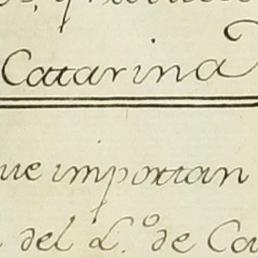 Catarina
que importan
del L.º de